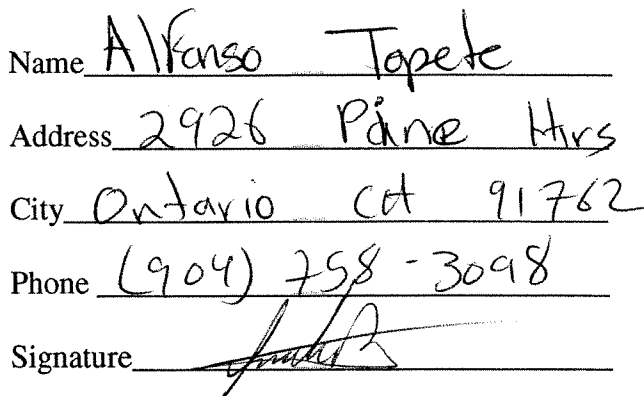 Name Alfonso Topete
Address 2926 Paine Hrs
City Ontario CA 91762
Phone (904) 758-3098
Signature